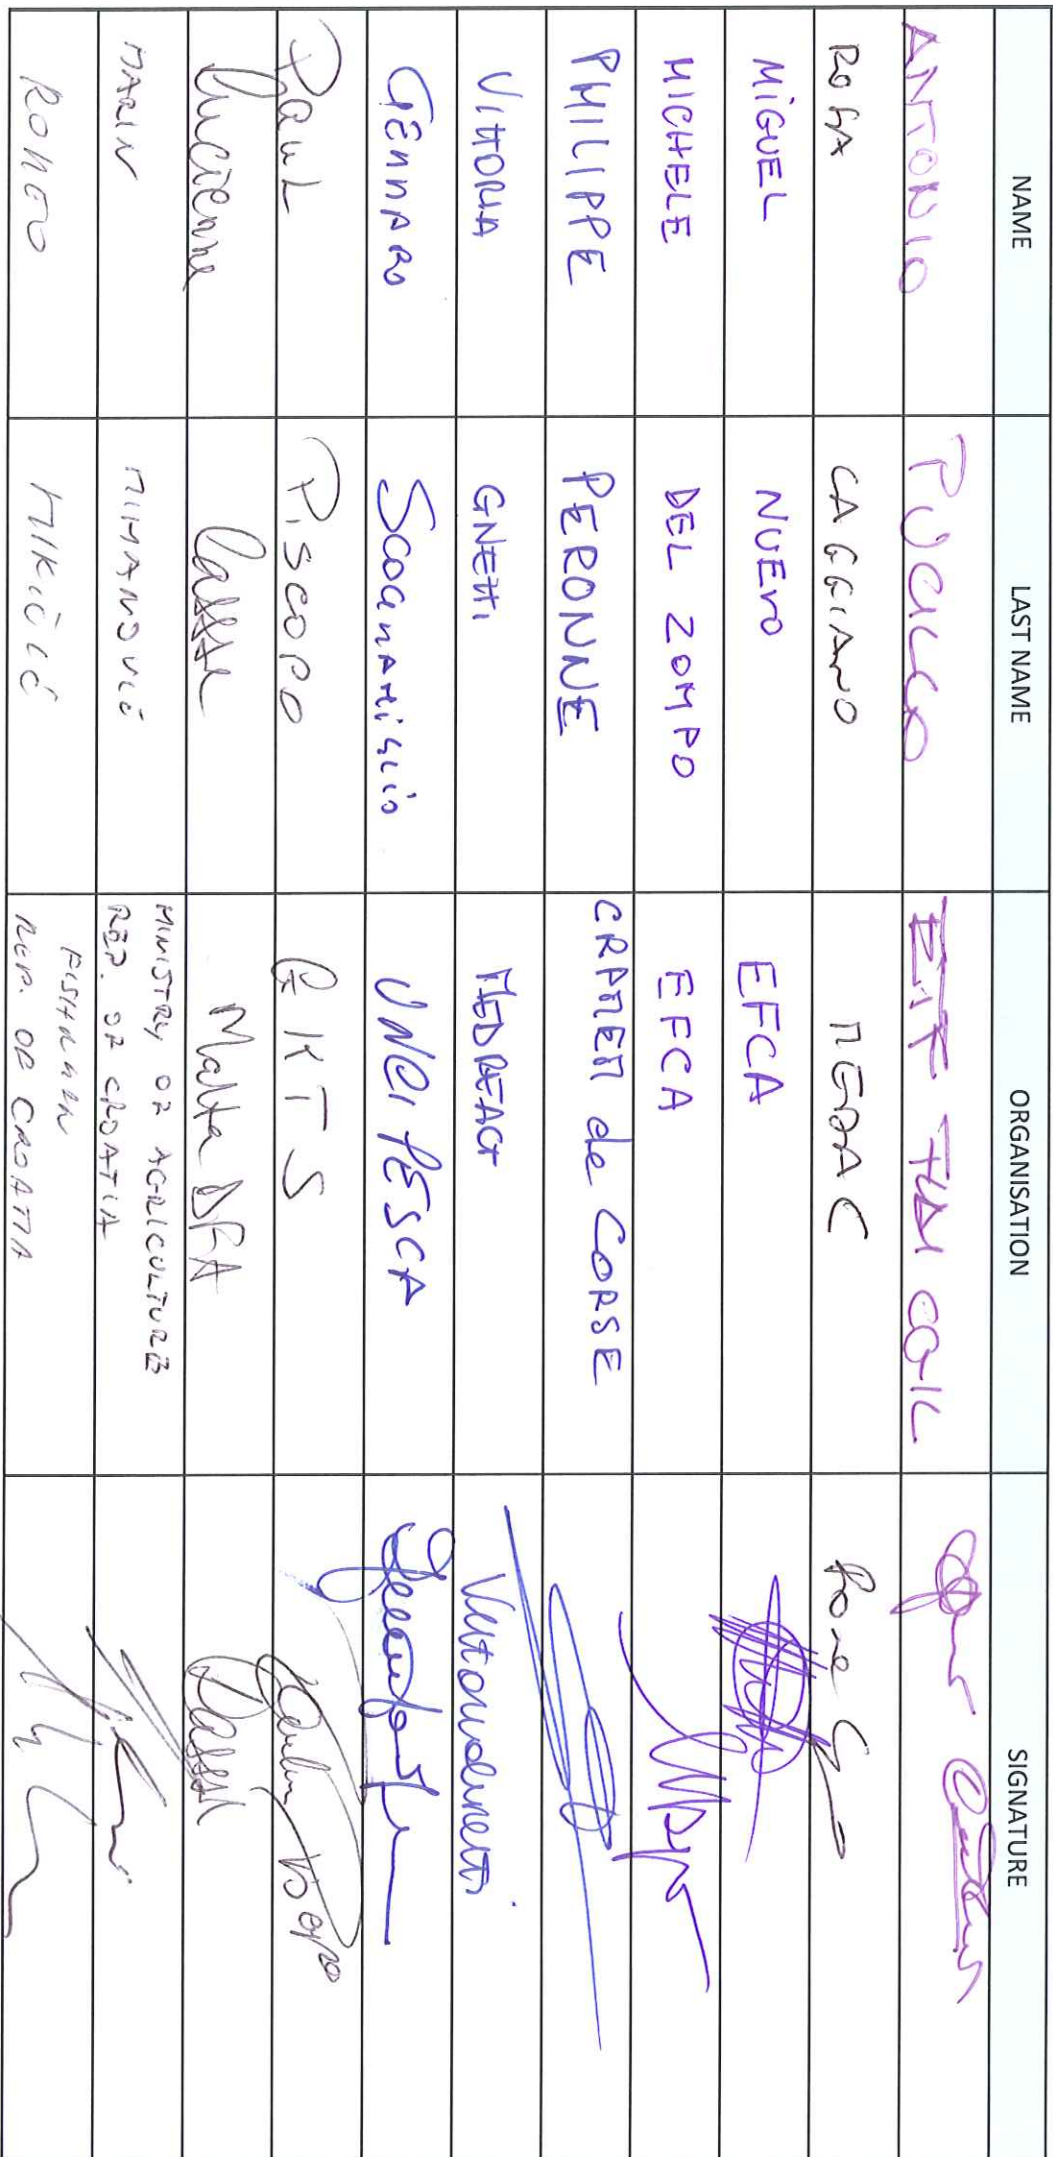 NAME LAST NAME ORGANISATION SIGNATURE
ANTONIO PUCILLO
ROSA CAGGIANO MEDAC
MIGUEL NUEVO EFCA
MICHELE DEL ZOMPO EFCA
PHILIPPE PERONNE CRPMEM de CORSE
VITTORIA GNETTI MEDREACT
GENNARO SCOGNAMIGLIO UNCI PESCA
Paul Piscopo GKTS
Lucienne Malta DFA
MARIN MIHANOVIĆ MINISTRY OF AGRICULTURE
REP. OF CROATIA
ROMEO MIKIČIĆ FISHERMAN
REP. OF CROATIA